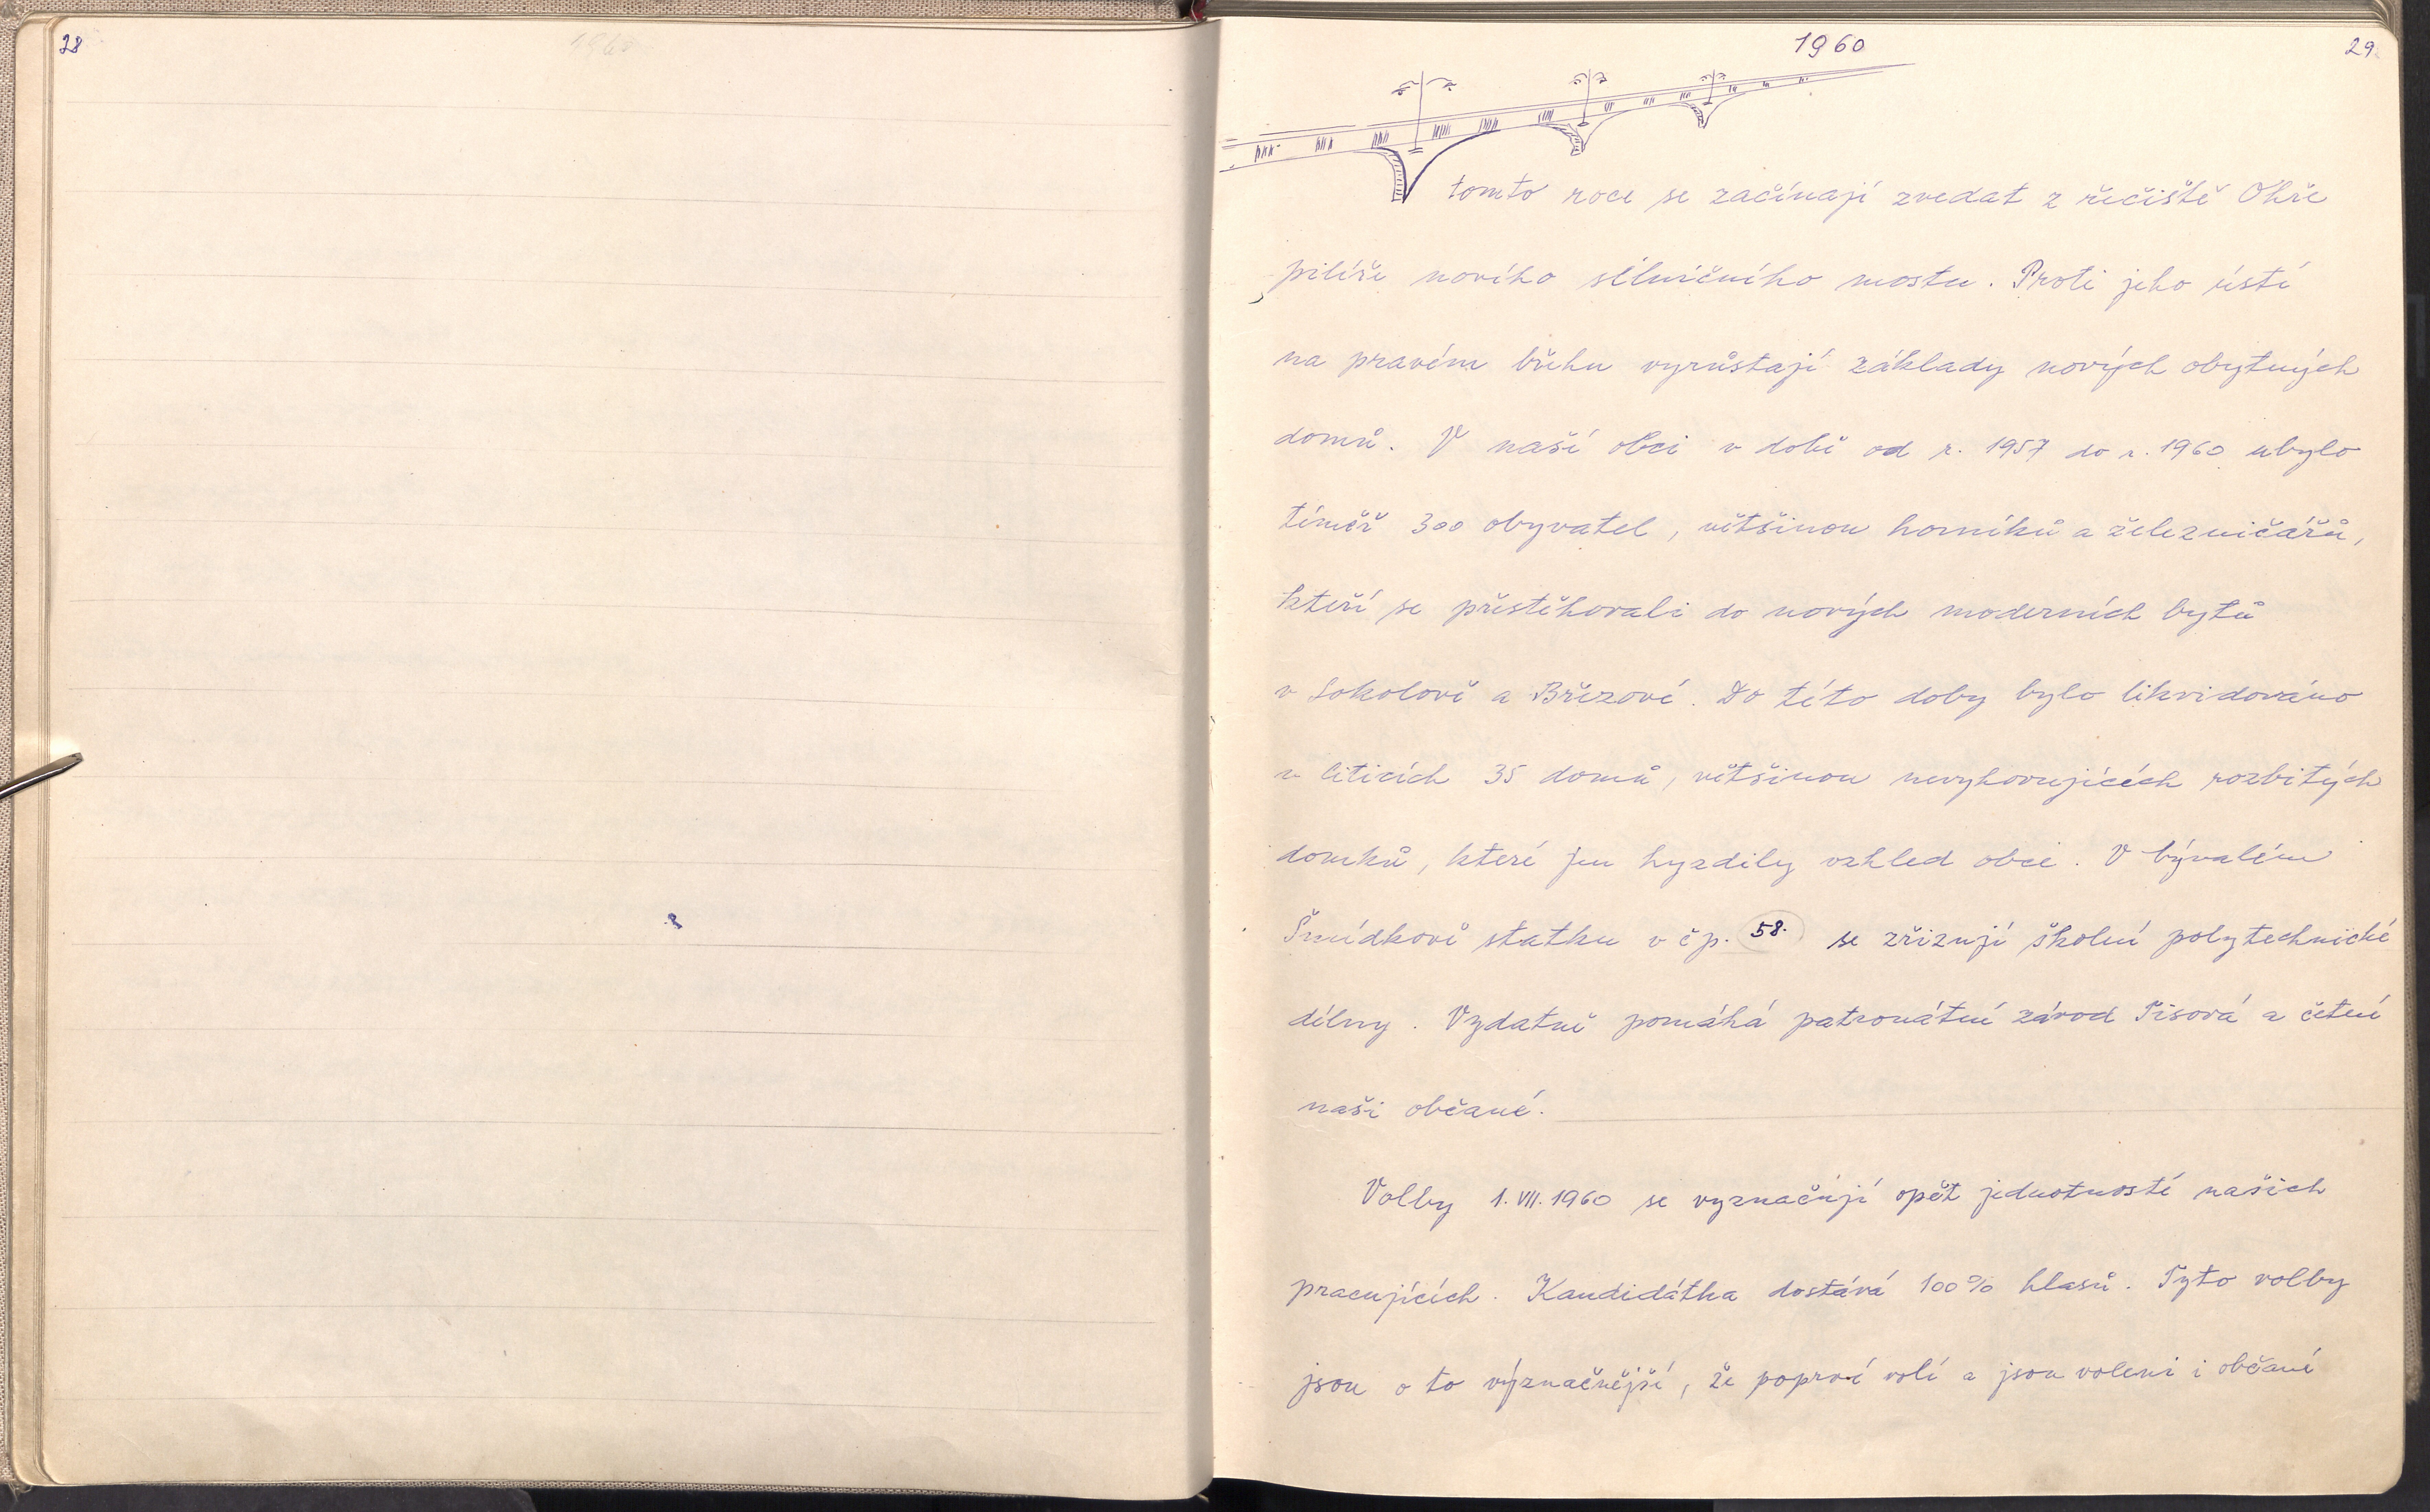 28
1960
1960
29
V tomto roce se začínají zvedat z řečiště Ohře
pilíře nového silničního mostu. Proti jeho ústí
na pravém břehu vyrůstají základy nových obytných
domů. V naší obci v době od r. 1957 do r. 1960 ubylo
téměř 300 obyvatel, většinou horníků a železničářů,
kteří se přestěhovali do nových moderních bytů
v Sokolově a Březové. Do této doby bylo likvidováno
v Citicích 35 domů, většinou nevyhovujících rozbitých
domků, které jen hyzdily vzhled obce. V bývalém
Šmídkově statku v čp. 58. se zřizují školní polytechnické
dílny. Vydatně pomáhá patronátní závod Tisová a četní
naši občané.
Volby 1. VII. 1960 se vyznačují opět jednotností našich
pracujících. Kandidátka dostává 100% hlasů. Tyto volby
jsou o to význačnější, že poprvé volí a jsou voleni i občané